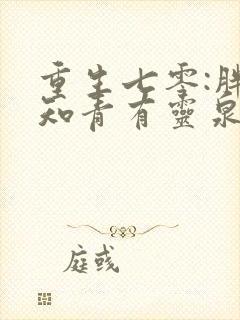 重生七零:胖
知青有靈泉
庭彧